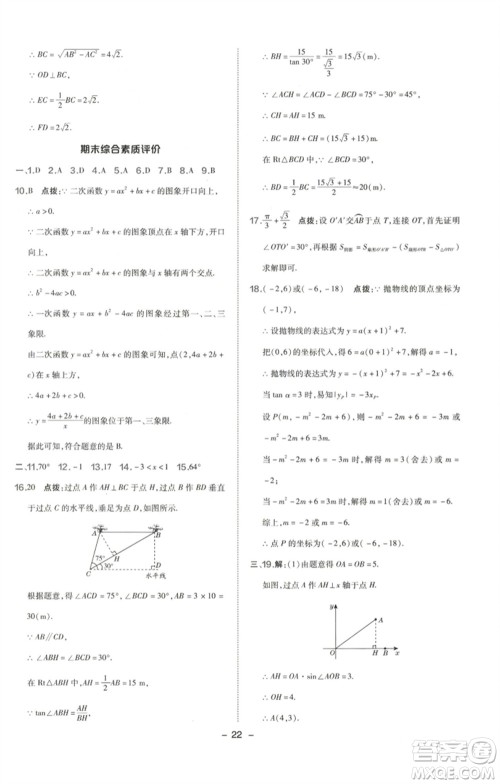 ∴ BC = √(AB² − AC²) = 4√2.
∵ OD⊥BC,
∴ EC = 1/2 BC = 2√2.
∴ FD = 2√2.
期末综合素质评价
一、1.D 2.A 3.D 4.A 5.D 6.A 7.A 8.A 9.B
10.B 点拨：∵ 二次函数 y = ax² + bx + c 的图象开口向上，
∴ a > 0.
∵ 二次函数 y = ax² + bx + c 的图象顶点在 x 轴下方，开口向上，
∴ 二次函数 y = ax² + bx + c 的图象与 x 轴有两个交点.
∴ b² − 4a > 0.
∴ 一次函数 y = ax + b² − 4ac 的图象经过第一、二、三象限.
∵ 二次函数 y = ax² + bx + c 的图象可知，点(2,4a + 2b + c)在 x 轴上方，
∴ 4a + 2b + c > 0.
∴ y = (4a + 2b + c)/x 的图象位于第一、三象限.
据此可知，符合题意的是 B.
二、11.70° 12.−1 13.17 14.−3 < x < 1 15.64°
16.20 点拨：过点 A 作 AH⊥BC，过点 B 作 BD 垂直于过点 C 的水平线，垂足为点 D，如图所示.
A B
75° H
30°
C D
水平线
根据题意，得∠ACD = 75°，∠BCD = 30°，AB = 3 × 10 = 30(m).
∵ AB∥CD，
∴ ∠ABC = ∠BCD = 30°.
在 Rt△ABH 中，AH = 1/2 AB = 15 m，
∵ tan∠ABH = AH/BH，
∴ BH = 15/tan 30° = 15/(√3/3) = 15√3(m).
∵ ∠ACH = ∠ACD − ∠BCD = 75° − 30° = 45°，
∴ CH = AH = 15 m.
∴ BC = BH + CH = (15√3 + 15)m.
在 Rt△BCD 中，∠BCD = 30°，
∴ BD = 1/2 BC = (15√3 + 15)/2 ≈ 20(m).
17. π/3 + √3/2 点拨：设 O′A′交AB于点 T，连接 OT，首先证明∠OTO′ = 30°，根据
求解即可.
18.(−2,6)或(−6,−18) 点拨：∵ 抛物线的顶点坐标为(−1,7)，
∴ 设抛物线的表达式为 y = a(x + 1)² + 7.
把(0,6)的坐标代入，得 6 = a + 7，解得 a = −1.
∴ 抛物线的表达式为 y = −(x + 1)² + 7 = −x² − 2x + 6.
设 P(m，−m² − 2m + 6)，
∵ tan α = 3，∴ |y_P| = −3x_P.
当 −m² − 2m + 6 = −3m 时，解得 m = 3(舍去)或 m = −2；
当 −m² − 2m + 6 = 3m 时，解得 m = 1(舍去)或 m = −6.
综上，
∴ 点 P 的坐标为(−2,6)或(−6,−18).
三、19.解：(1) 由题意得 OA = OB = 5.
如图，过点 A 作 AH⊥x 轴于点 H，
y
A
O H B x
∴ AH = OA · sin∠AOB = 5 × 3/5 = 3.
∴ OH = 4.
∴ A(4,3).
– 22 –
答案圈
MXQE.COM